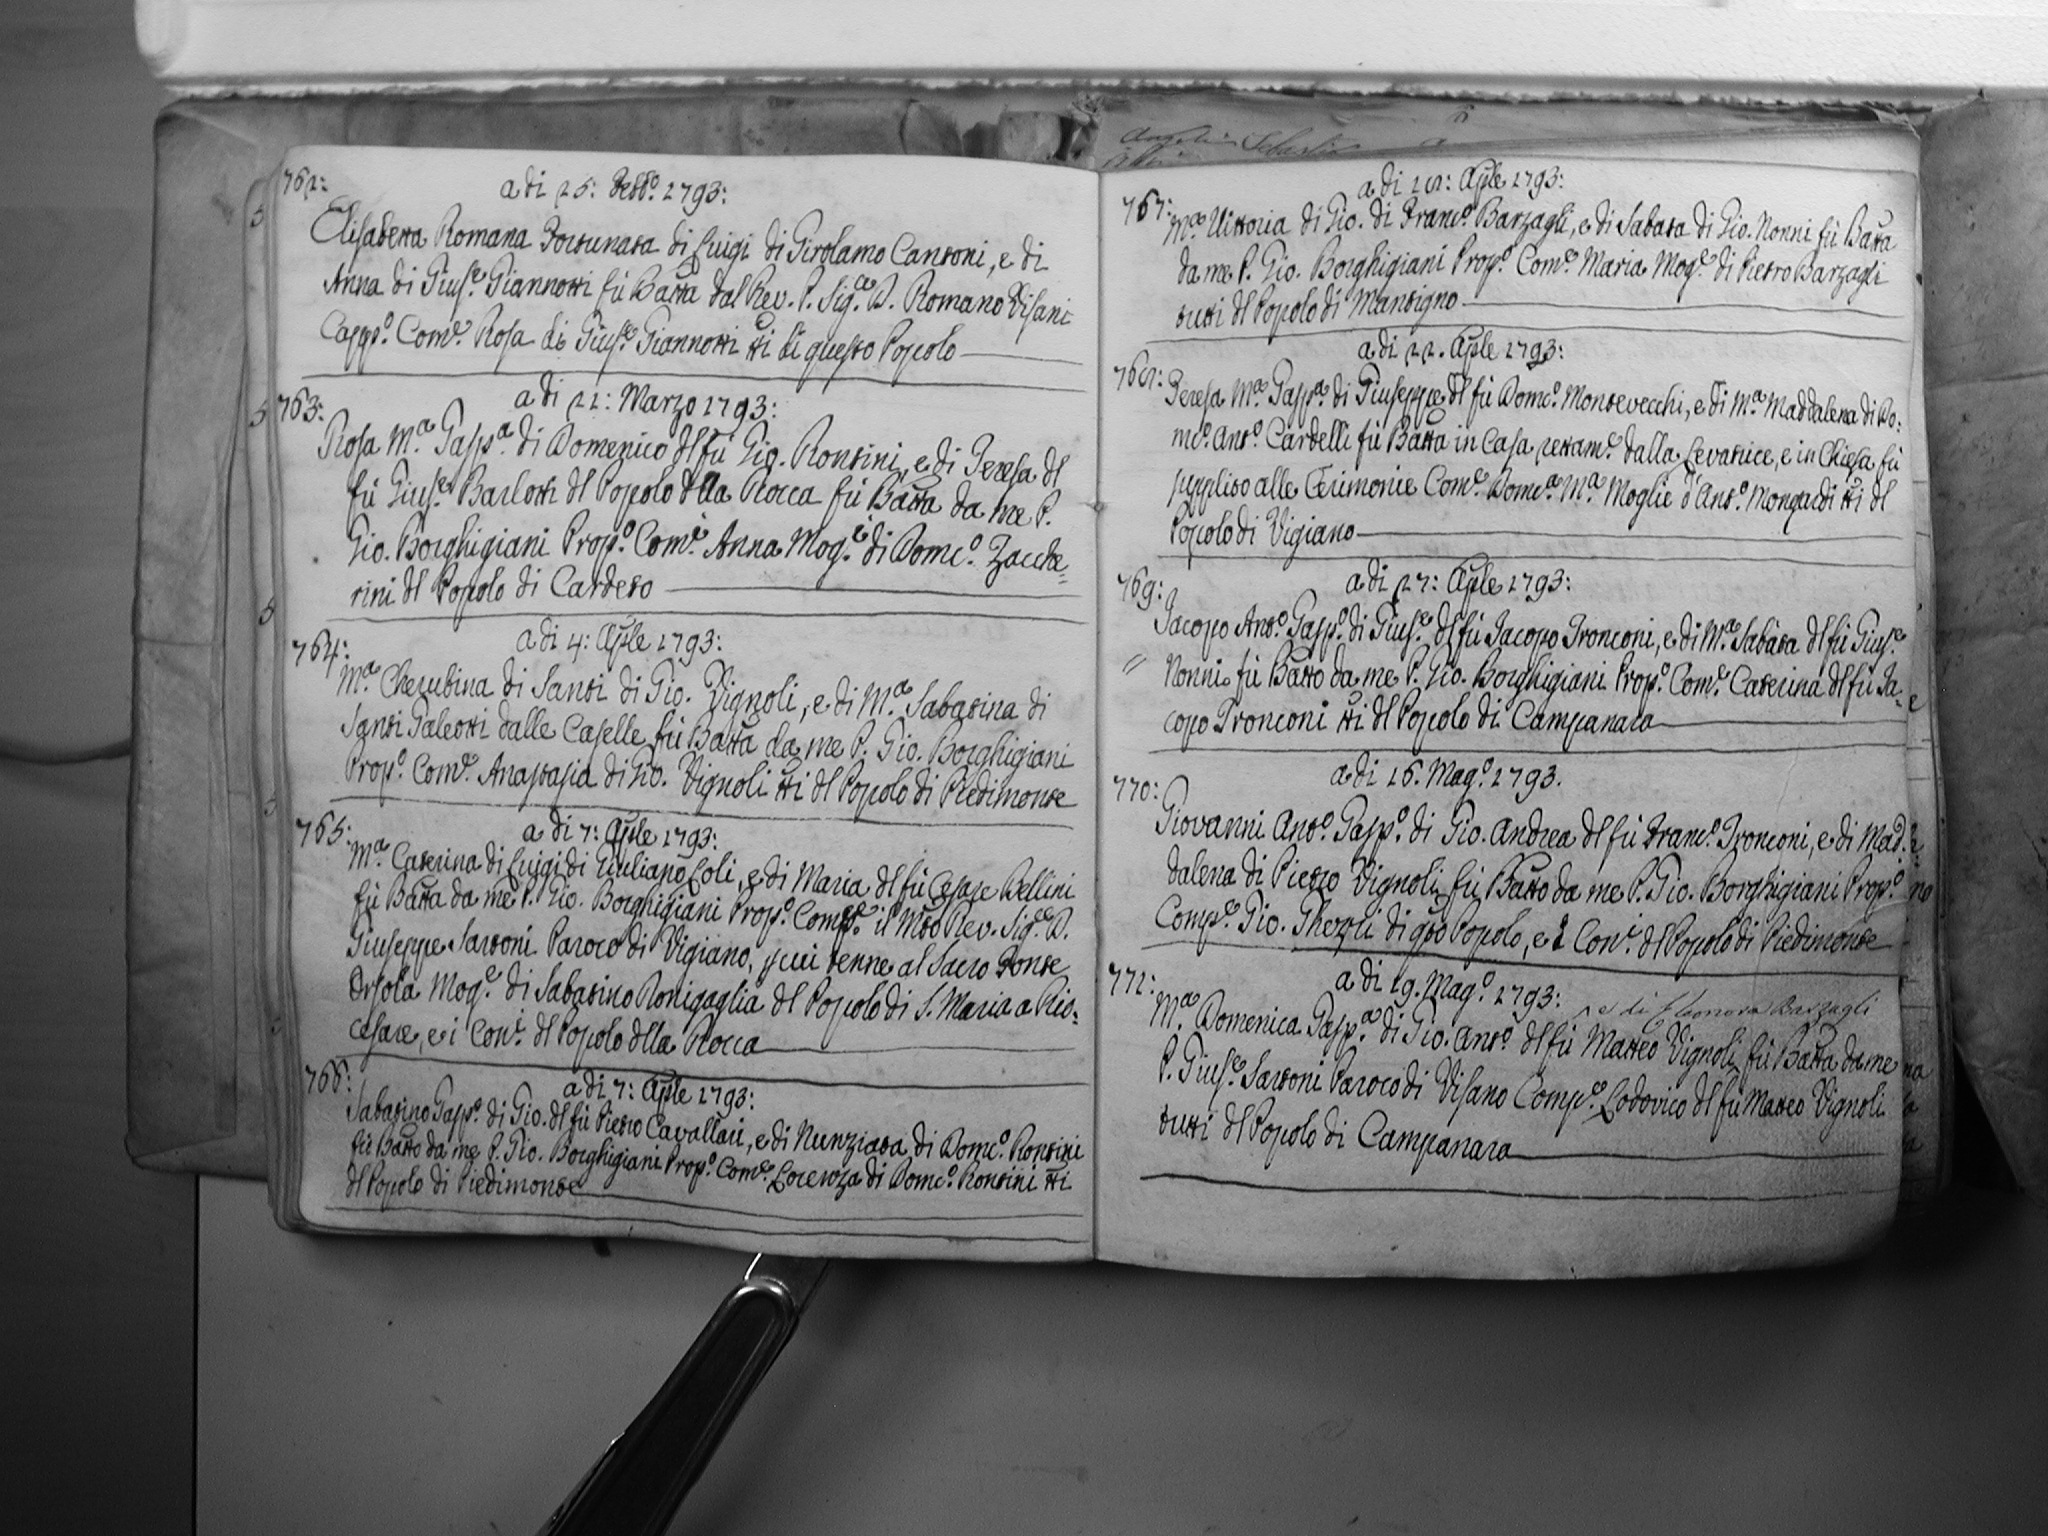 762:
a di 25: Febb.º 1793:
Elisabetta Romana Fortunata di Luigi di Girolamo Cantoni, e di
Anna di Gius.e Giannotti fù Batta dal Rev. P. Sig.e D. Romano Visani
Capp.º Com.e Rosa di Gius.e Giannotti tti di questo Popolo
763:
a di 22: Marzo 1793:
Rosa M.a Gasp.a di Domenico dl fù Gio. Rontini, e di Teresa dl
fù Gius.e Barlotti dl Popolo dlla Rocca fù Batta da me P.
Gio. Borghigiani Prop.º Com.e Anna Mog.e di Dom.cº Zacche=
rini dl Popolo di Cardeto
764:
a di 4: Aple 1793:
M.a Cherubina di Santi di Gio. Vignoli, e di M.a Sabatina di
Santi Galeotti dalle Caselle fù Batta da me P. Gio. Borghigiani
Prop.º Com.e Anastasia di Gio. Vignoli tti dl Popolo di Piedimonte
765:
a di 7: Aple 1793:
M.a Caterina di Luigi di Giuliano Loli, e di Maria dl fù Cesare Bellini
fù Batta da me P. Gio. Borghigiani Prop.º Comp.e il Mtо Rev. Sig.e D.
Giuseppe Sartoni Paroco di Vigiano, p cui tenne al Sacro Fonte
Orsola Mog.e di Sabatino Ronigaglia dl Popolo di S. Maria a Rio=
cesare, e i Con.i dl Popolo dlla Rocca
766:
a di 7: Aple 1793:
Sabatino Gasp.º di Gio. dl fù Pietro Cavallari, e di Nunziata di Dom.cº Rontini
fù Batto da me P. Gio. Borghigiani Prop.º Com.e Lorenza di Dom.cº Rontini tti
dl Popolo di Piedimonte
767:
a di 21: Aple 1793:
M.a Vittoria di Gio. di Franc.º Barzagli, e di Sabata di Gio. Nonni fù Batta
da me P. Gio. Borghigiani Prop.º Com.e Maria Mog.e di Pietro Barzagli
tutti dl Popolo di Mantigno
a di 22. Aple 1793:
768:
Teresa M.a Gasp.a di Giuseppe dl fù Dom.cº Montevecchi, e di M.a Maddalena di Do:
m.cº Ant.º Cardelli fù Batta in Casa rettam.e dalla Levatrice, e in Chiesa fù
supplito alle Cerimonie Com.e Dom.ca M.a Moglie d'Ant.º Mongardi tti dl
Popolo di Vigiano
769:
a di 27: Aple 1793:
Jacopo Ant.º Gasp.º di Gius.e dl fù Jacopo Tronconi, e di M.a Sabata dl fù Gius.e
Nonni fù Batto da me P. Gio. Borghigiani Prop.º Com.e Caterina dl fù Ja=
copo Tronconi tti dl Popolo di Campanara
a di 16. Mag.º 1793.
770:
Giovanni Ant.º Gasp.º di Gio. Andrea dl fù Franc.º Tronconi, e di Mad=
dalena di Pietro Vignoli fù Batto da me P. Gio. Borghigiani Prop.º
Comp.e Gio. di qsto Popolo, e i Con.i dl Popolo di Piedimonte
771:
a di 19. Mag.º 1793:
e di Eleonora Barzagli
M.a Domenica Gasp.a di Gio. Ant.º dl fù Matteo Vignoli fù Batta da me
P. Gius.e Sartoni Paroco di Visano Comp.e Lodovico dl fù Matteo Vignoli
tutti dl Popolo di Campanara